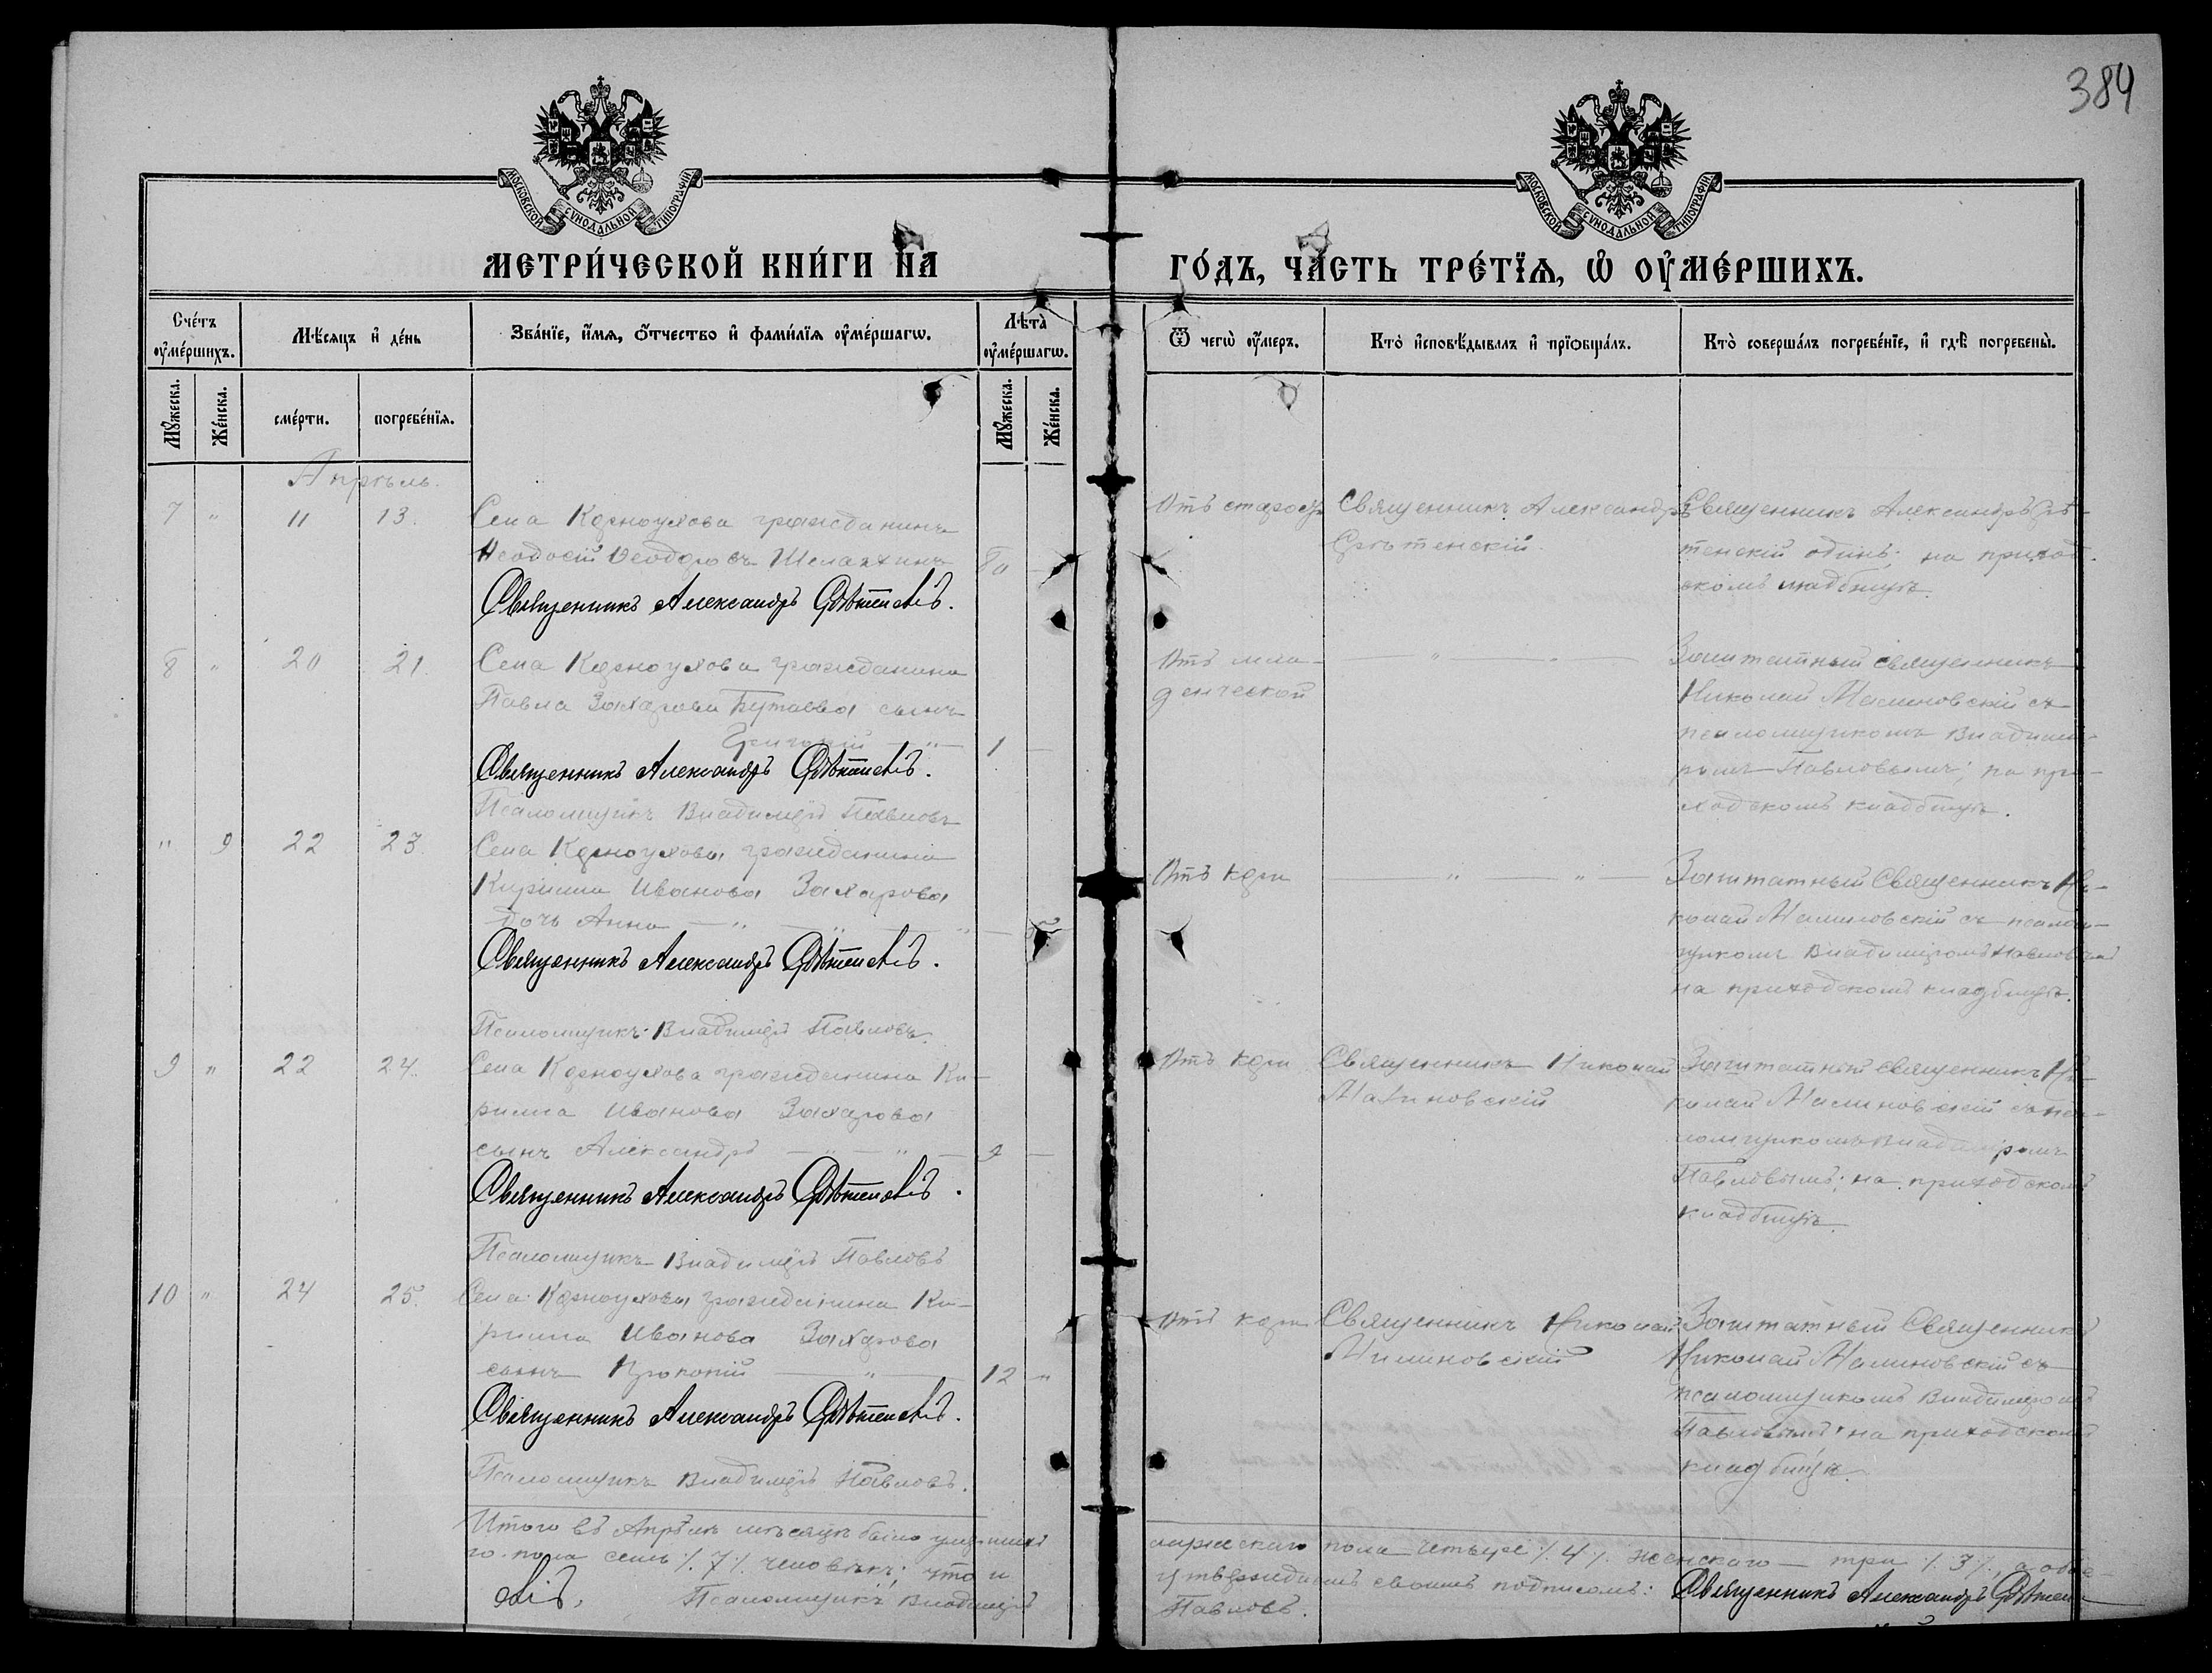 384
МОСКОВСКОЙ СѴНОДАЛЬНОЙ ТИПОГРАФІИ
МОСКОВСКОЙ СѴНОДАЛЬНОЙ ТИПОГРАФІИ
МЕТРИ́ЧЕСКОЙ КНИ́ГИ НА̀ ГО́ДЪ, ЧА́СТЬ ТРЕ́ТЇѦ, Ѡ҆ ОУ҆МЕ́РШИХЪ.
Сче́тъ оу҆ме́ршихъ.
Мѣ́сѧцъ и҆ де́нь
Зва́нїе, и҆́мѧ, ѻ҆́тчество и҆ фами́лїѧ оу҆ме́ршагѡ.
Лѣ́та оу҆ме́ршагѡ.
Ѿ чегѡ̀ оу҆́меръ.
Кто̀ и҆сповѣ́дывалъ и҆ прїѡбща́лъ.
Кто̀ соверша́лъ погребе́нїе, и҆ гдѣ̀ погребены̀.
Мꙋ́жеска.
Же́нска.
сме́рти.
погребе́нїѧ.
Мꙋ́жеска.
Же́нска.
Апрѣль.
7 " 11 13.
Села Карноухова гражданинъ
Ѳеодосій Ѳеодоровъ
80
Священникъ Александръ Срѣтенскій.
Священникъ Александръ
Срѣтенскій.
Священникъ Александръ Срѣ-
тенскій одинъ; на приход-
скомъ кладбищѣ.
8 " 20 21
Села Карноухова гражданина
Павла Захарова сынъ
Григорій — " — 1 —
Священникъ Александръ Срѣтенскій.
Псаломщикъ Владиміръ Павловъ
Отъ мла-
денческой
— " — " —
Заштатный священникъ
Николай Малиновскій съ
псаломщикомъ Владимі-
ромъ Павловымъ; на при-
ходскомъ кладбищѣ.
" 9 22 23.
Села Карноухова гражданина
Кирилла Иванова Захарова
дочь Анна — " — " — " — 5
Священникъ Александръ Срѣтенскій.
Псаломщикъ Владиміръ Павловъ.
Отъ кори
— " — " —
Заштатный Священникъ Ни-
колай Малиновскій съ псалом-
щикомъ Владиміромъ Павловымъ
на приходскомъ кладбищѣ.
9 " 22 24.
Села Карноухова гражданина Ки-
рилла Иванова Захарова
сынъ Александръ — " — " — 9 —
Священникъ Александръ Срѣтенскій.
Псаломщикъ Владиміръ Павловъ
Отъ кори
Священникъ Николай
Малиновскій
Заштатный священникъ Ни-
колай Малиновскій съ пса-
ломщикомъ Владиміромъ
Павловымъ; на приходскомъ
кладбищѣ.
10 " 24 25.
Села Карноухова гражданина Ки-
рилла Иванова Захарова
сынъ Прокопій — " — 12 "
Священникъ Александръ Срѣтенскій.
Псаломщикъ Владиміръ Павловъ.
Отъ кори
Священникъ Николай
Малиновскій
Заштатный Священникъ
Николай Малиновскій съ
псаломщикомъ Владиміромъ
Павловымъ на приходскомъ
кладбищѣ.
Итого въ Апрѣлѣ мѣсяцѣ было умершихъ мужескаго пола четыре ⁒ 4 ⁒ женскаго — три ⁒ 3 ⁒, а обое-
го пола семь ⁒ 7 ⁒ человѣкъ; что и утверждаемъ своимъ подписомъ: Священникъ Александръ Срѣтен-
скій. Псаломщикъ Владиміръ Павловъ.